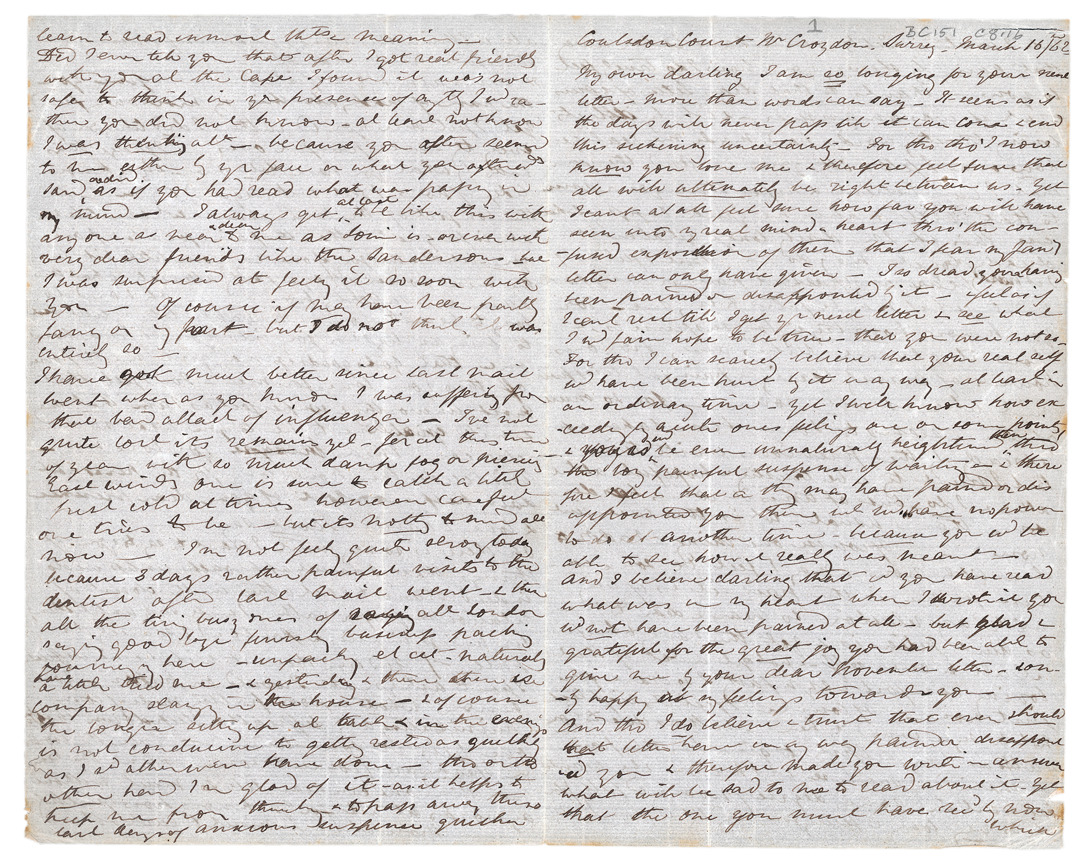 learn to read in mind these meaning –
Did I ever tell you that after I got real friends
with you at the Cape I found it was not
safe to think in yr presence of anythg I wd ra-
ther you did not know – at least not know
I was thinkg abt – because you often seemed
to me either by yr face or what you afterwds
said again as if you had read what was passg in
my mind – I always get at last to be like this with
anyone as near & dear to me as is or even with
very dear friends like the Sandersons – but
I was surprised at feelg it so soon with
you – Of course it may have been partly
fancy on my part – but I do not think it was
entirely so –
I have got much better since last mail
went when as you know I was suffering from
that bad attack of influenza – I've not
quite lost its remains yet – for at this time
of year with so much damp fog or piercing
East winds one is sure to catch a little
fresh cold at times however careful
one tries to be – but its nothg to mind at all
now – I'm not feelg quite strong today
because 3 days rather painful visits to the
dentist after last mail went – & then
all the busy ones of all London
saying good bye business packing
journey here – unpackg et cet – naturally
have a little tired me – & yesterday & there
company stayg in the house – & of course
the longer sittg up at table & in the eveng
is not conducive to gettg rested as quickly
as I sd otherwise have done – tho' on the
other hand I'm glad of it – as it helps to
keep me from thinkg & to pass away these
last days of anxious suspense quicker
1 BC151 C8.16
Coulsdon Court Nr Croydon. Surrey. March 16/62
My own darling I am so longing for your next
letter – more than words can say – It seems as if
the days will never pass till it can come & end
this sickening uncertainty – For tho' tho' I now
know you love me & therefore feel sure that
all will ultimately be right between us – Yet
I cant at all feel sure how far you will have
seen into my real mind & heart thro' the con-
fused exposition of them that I fear my Jany
letter can only have given – I so dread your having
been pained or disappointed by it – & feel as if
I cant rest till I get yr next letter & see what
I wd fain hope to be true – that you were not so –
For tho' I can scarcely believe that your real self
wd have been hurt by it in any way – at least in
an ordinary time – yet I well know how ex-
ceedgly acute ones feelings are on some points
& yours wd be even unnaturally heightened then thro'
the long painful suspense of waiting – & there
fore I feel that a thg may have pained or dis
appointed you then wh wd have no power
to do it another time – because you wd be
able to see how it really was meant –
And I believe darling that cd you have read
what was in my heart when I wrote it you
wd not have been pained at all – but glad &
grateful for the great joy you had been able to
give me by your dear November letter – &
happy at my feelings towards you –
And tho' I do believe & trust that even should
that letter have in any way pained or disappoint
ed you & therefore made you write in answer
what will be sad to me to read about it – yet
that the one you must have recd by now
which